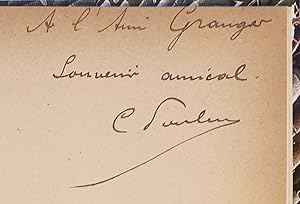 A l'Ami Granger
Souvenir amical.
C